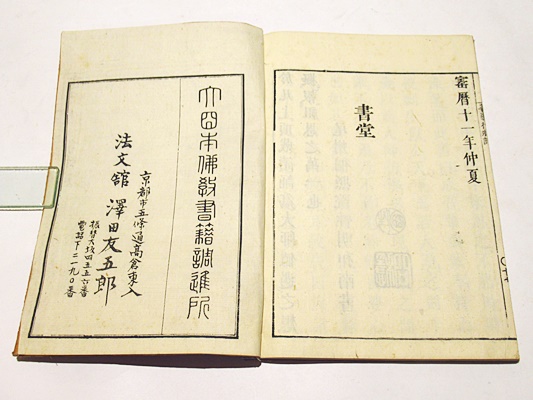 寳暦十一年仲夏
書堂
大日本佛敎書籍調進所
京都市五條通高倉東入
法文舘 澤田友五郎
振替大坂四五五六番
電話下二一九〇番